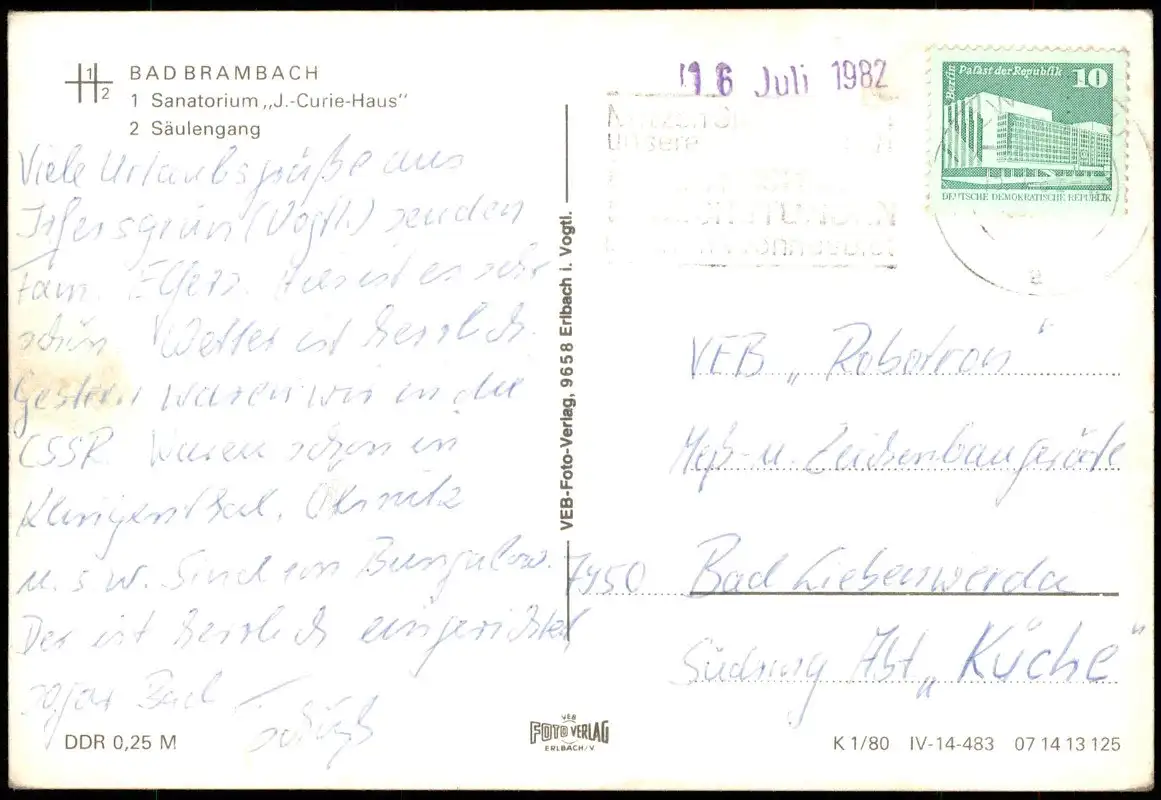 1
2
BAD BRAMBACH
1 Sanatorium „J.-Curie-Haus"
2 Säulengang
Viele Urlaubsgrüße aus
Irfersgrün (Vogtl.) senden
Fam. Ehers. Hier ist es sehr
schön. Wetter ist herrlich.
Gestern waren wir in die
CSSR. Waren schon in
Klingenthal, Olsnitz
u. s w. Sind im Bungalow.
Der ist herrlich eingerichtet,
sogar Bad
DDR 0,25 M
VEB-Foto-Verlag, 9658 Erlbach i. Vogtl.
VEB
FOTO VERLAG
ERLBACH/V.
16 Juli 1982
unsere
Berlin
Palast der Republik
10
DEUTSCHE DEMOKRATISCHE REPUBLIK
a
VEB „Robotron"
Meß- u. Zeichenbaugeräte
7950 Bad Liebenwerda
Südring Abt „Küche"
K 1/80 IV-14-483 07 14 13 125